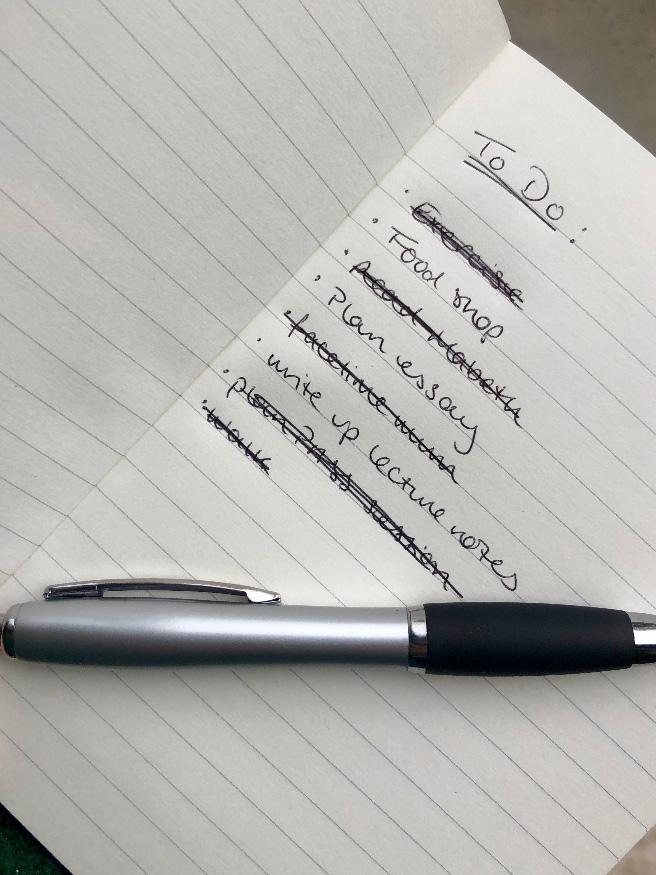 To Do:
· Exercise
· Food shop
· Read Macbeth
· Plan essay
· facetime mum
· write up lecture notes
· plan PASS session
· walk